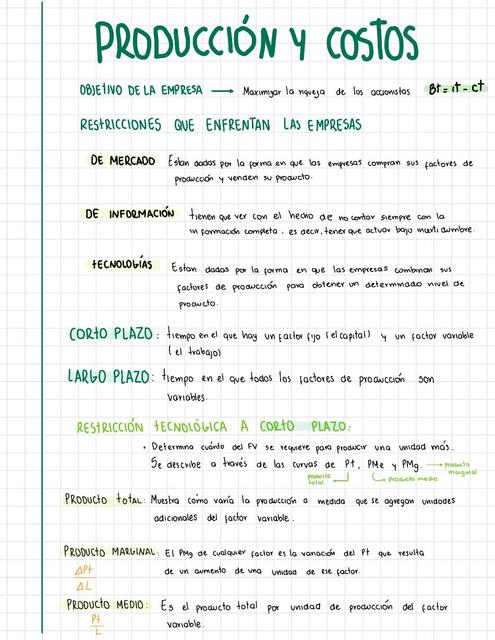 PRODUCCIÓN Y COSTOS
OBJETIVO DE LA EMPRESA → Maximizar la riqueza de los accionistas Bt = It - Ct
RESTRICCIONES QUE ENFRENTAN LAS EMPRESAS
DE MERCADO Estan dadas por la forma en que las empresas compran sus factores de
producción y venden su producto.
DE INFORMACIÓN tienen que ver con el hecho de no contar siempre con la
información completa, es decir, tener que actuar bajo incertidumbre.
tECNOLOGÍAS Estan dadas por la forma en que las empresas combinan sus
factores de producción para obtener un determinado nivel de
producto.
CORTO PLAZO: tiempo en el que hay un factor fijo (el capital) y un factor variable
(el trabajo)
LARGO PLAZO: tiempo en el que todos los factores de producción son
variables.
RESTRICCIÓN tECNOLÓGICA A CORTO PLAZO:
• Determina cuánto del FV se requiere para producir una unidad más.
Se describe a través de las curvas de Pt, PMe y PMg. → producto
marginal
producto
total
producto medio
PRODUCTO tOtAL: Muestra cómo varía la producción a medida que se agregan unidades
adicionales del factor variable.
PRODUCTO MARGINAL: El PMg de cualquier factor es la variación del Pt que resulta
ΔPt
de un aumento de una unidad de ese factor.
ΔL
PRODUCTO MEDIO: Es el producto total por unidad de producción del factor
Pt
variable.
L